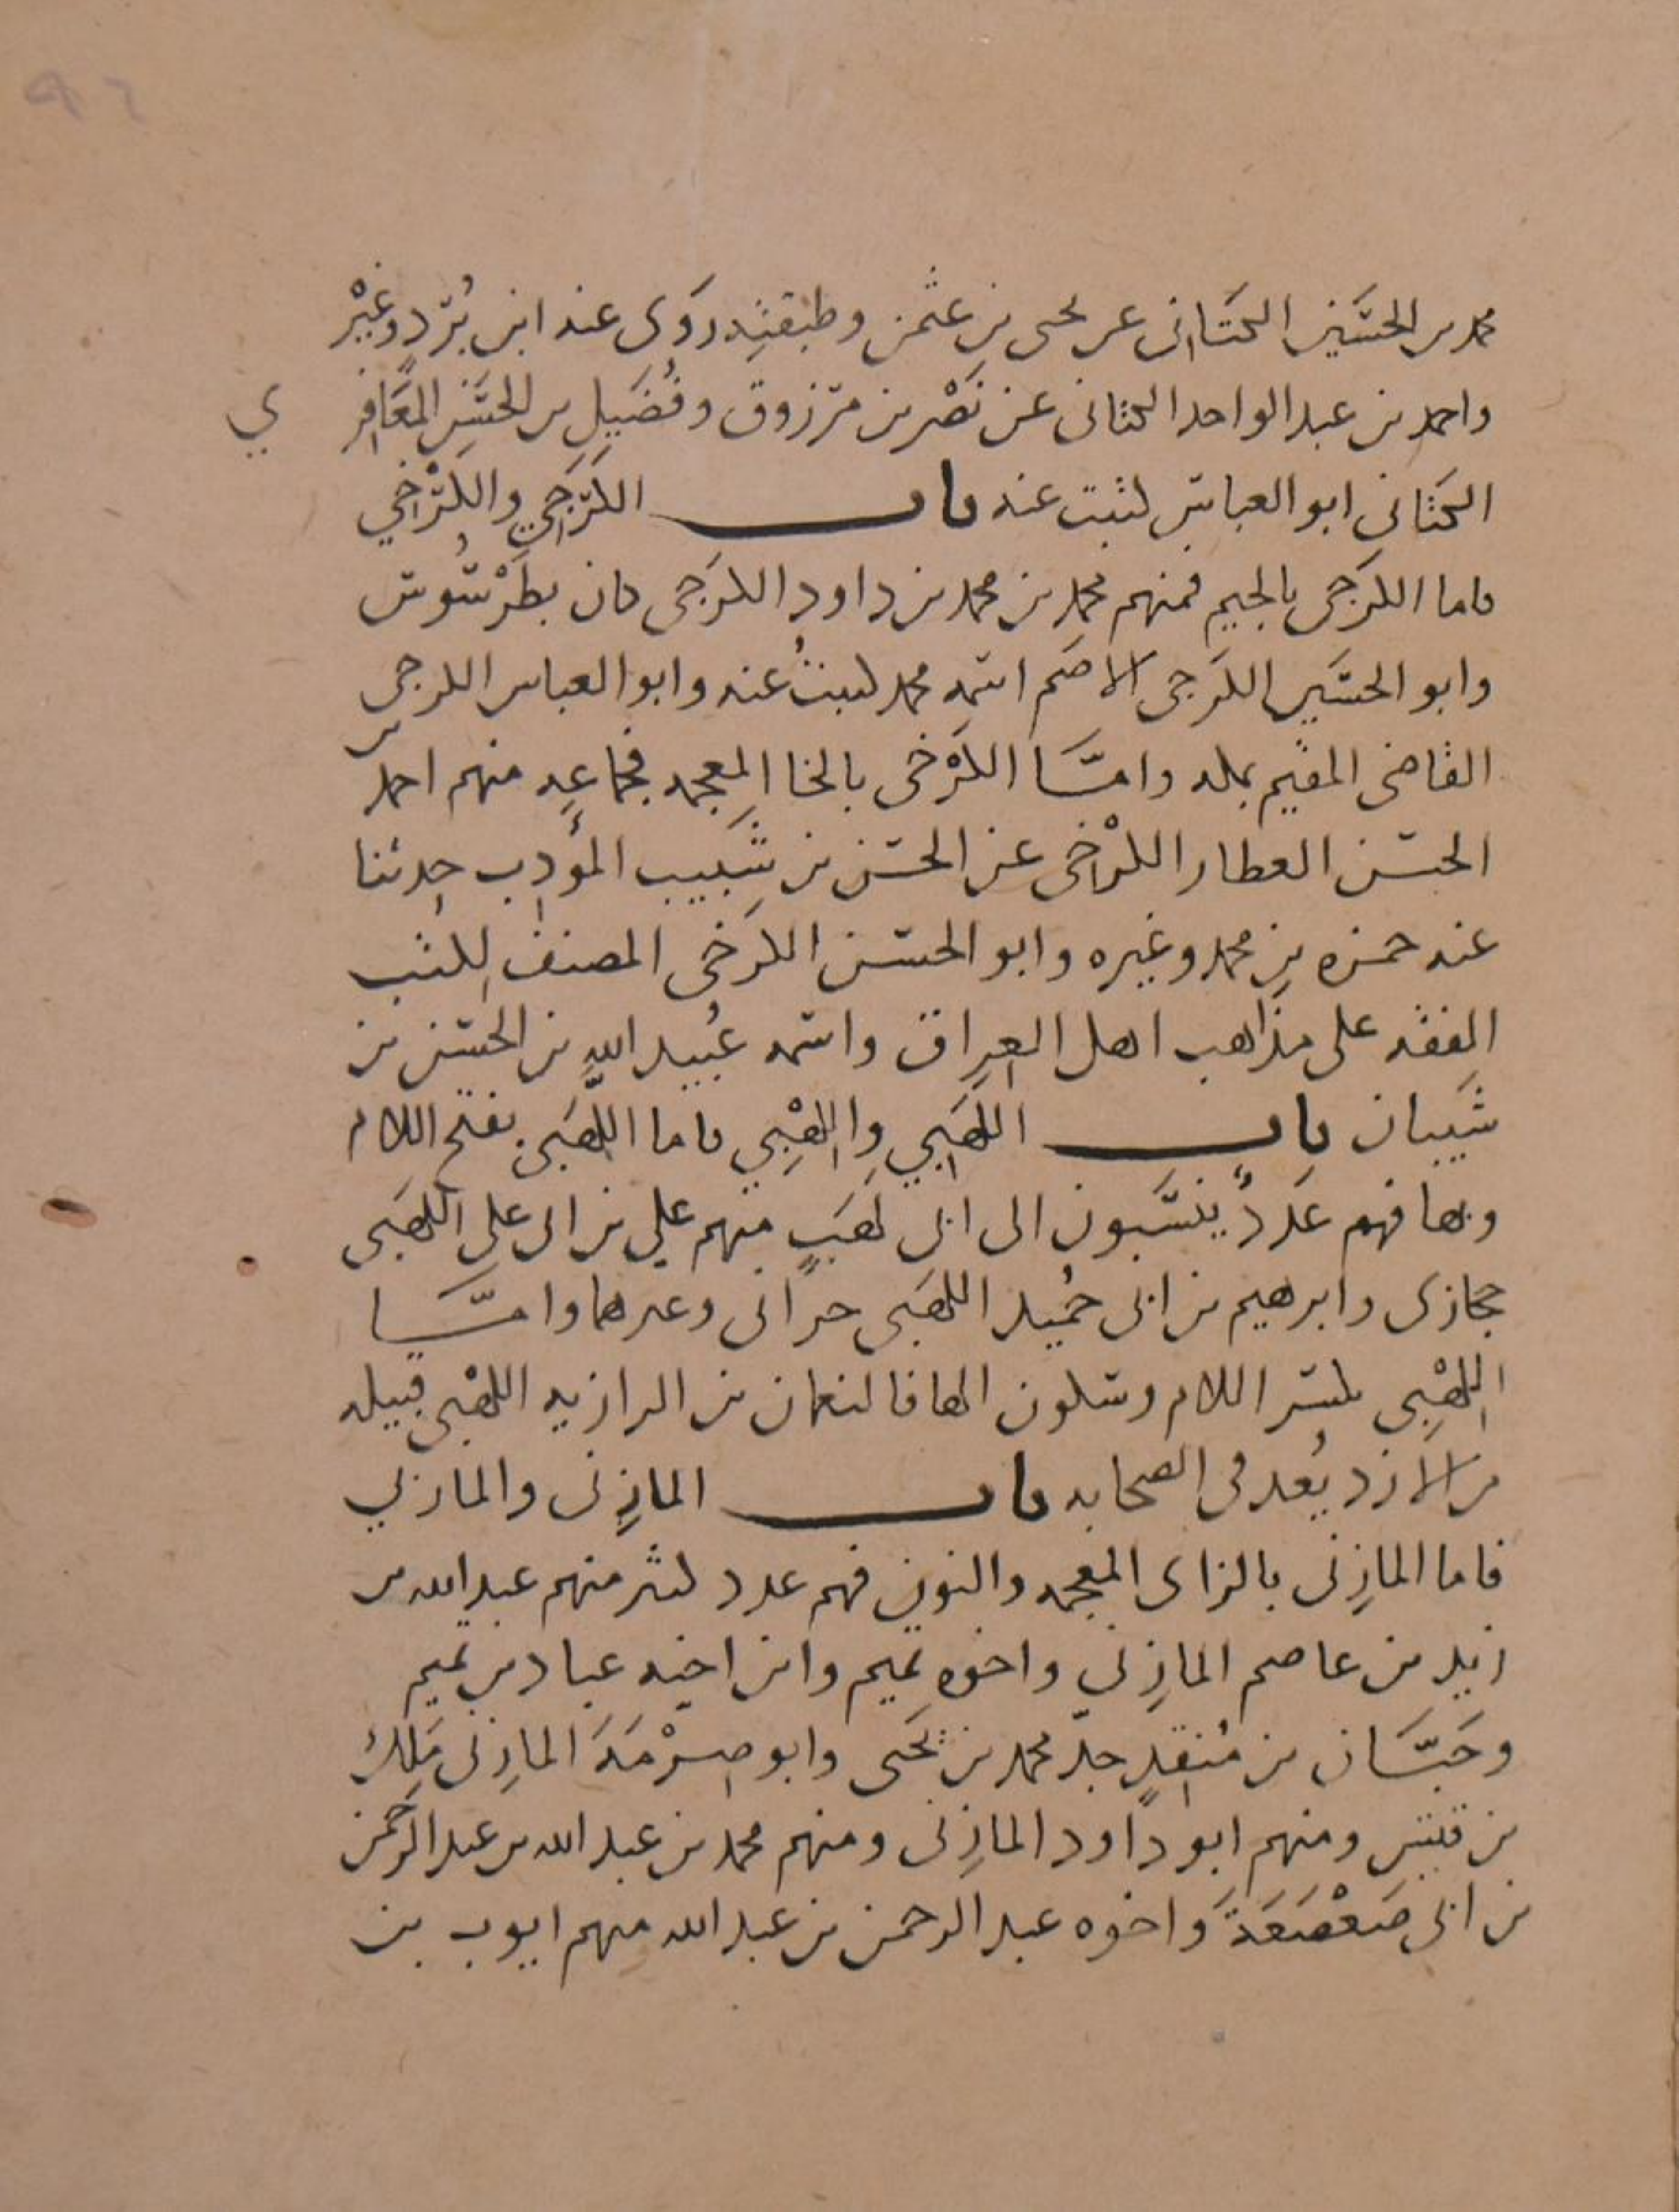 ٩٦
محمد بن الحسين الكتاني عن يحيى بن عثمن وطبقته روى عنه ابن بُرد وغَيْر
واحمد بن عبد الواحد الكتاني عن نَصْر بن مرزوق وفُضَيل بن الحسَن المعَافِر ي
الكَتاني ابو العباس كتبت عنه باب الكَرَجِي والكَرْخِي
فاما الكرَجي بالجيم فمنهم محمد بن محمد بن داود الكرَجي كان بطَرْسُوس
وابو الحسَين الكَرَجي الاصَم اسمه محمد كتبتُ عنه وابو العباس الكرجي
القاضي المقيم بمكه وامَّا الكَرْخي بالخا المعجمه فجماعه منهم احمد بن
الحسن العطار الكرْخي عن الحسَن بن شَبيب المؤدب حدثنا
عنه حمزه بن محمد وغيره وابو الحسَن الكرَخي المصنف لكتب
الفقه على مذاهب اهل العراق واسمه عُبيد اللهِ بن الحسَن بن
شَيبان باب اللهَبي واللِهْبِي فاما اللَّهَبي بفتح اللام
وبها فهم عَددٌ ينسَبون الى ابي لهَبٍ منهم علي بن ابي علي اللهَبي
حجازي وابرهيم بن ابي حُميد اللهَبي حراني وغيرهما وامَّا
اللِهْبِي بكسر اللام وسكون الها فالنعمان بن الرازيه اللهْبي قبيله
من الازد يُعد في الصحابه باب المازِني والماربي
فاما المازِني بالزاى المعجمه والنون فهم عدد كثير منهم عبد الله بن
زيد بن عاصم المازِني واخوه تميم وابن اخيه عباد بن تميم
وحَبَّان بن مُنقِدٍ جد محمد بن يَحَيى وابو صِرْمَةَ المازِني مَلِك
بن قيس ومنهم ابو داود المازِني ومنهم محمد بن عبد الله بن عبد الرحمن
بن ابي صَعْصَعَة واخوه عبد الرحمن بن عبد الله منهم ايوب بن